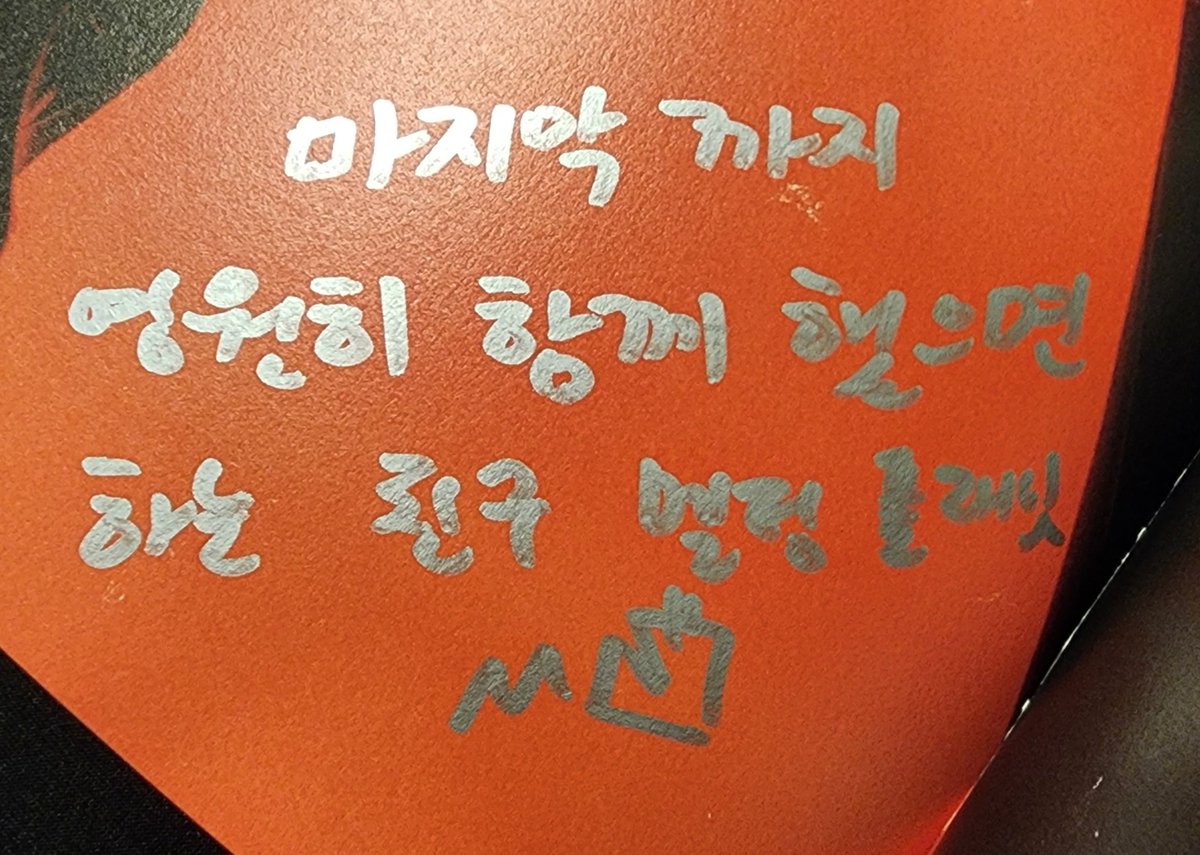 마지막 까지
영원히 함께 했으면
하는 친구 멜링 플래닛